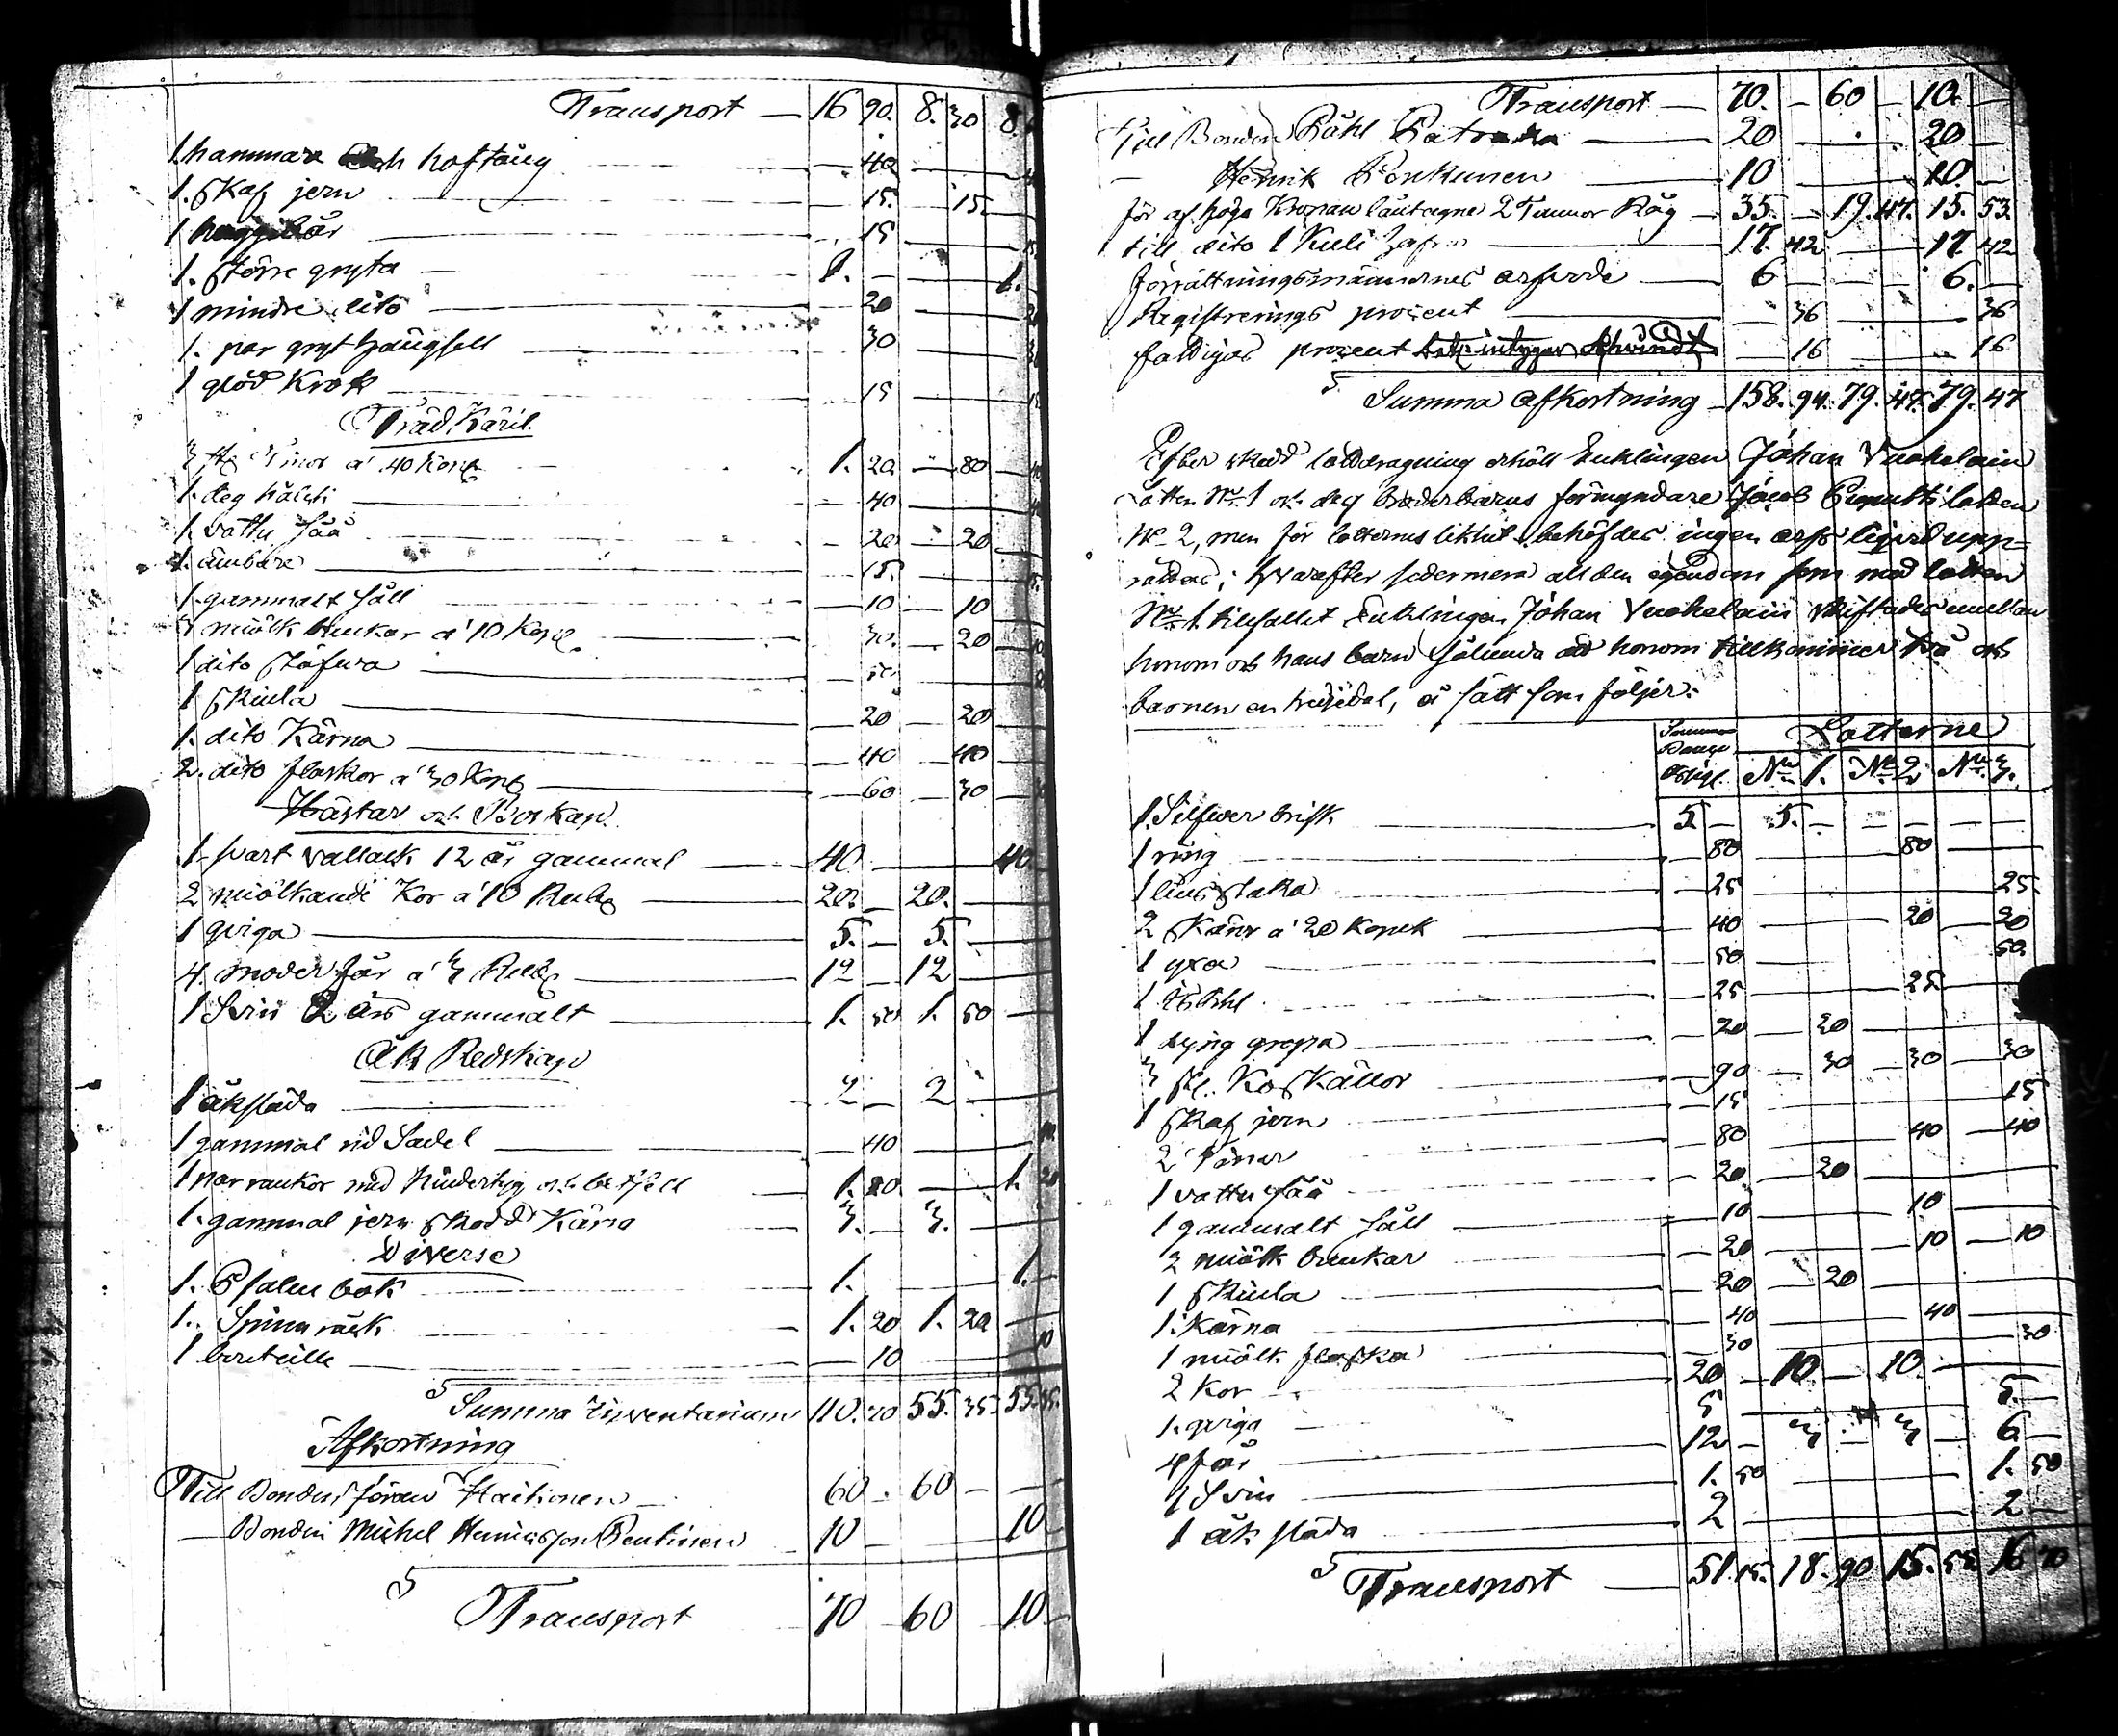 Transport — 16 90. 8. 30 8.
1. hammare och hoftång — 40 —
1. skaf jern — 15. — 15. —
1 — 15 —
1. större gryta — 1. — — 1.
1 mindre dito — 20 —
1. par gryt hängsell — 30 — 30
1 glöd Krok — 15 — 15
Träd Käril
3 st: Tinor a' 40 Kop: — 1. 20 — 80 — 40
1. deg — 40 — 40
1. vattu såå — 20 — 20 —
1. ämbare — 15. — 15.
1 gammalt såll — 10 — 10
3 miölk bunkar a' 10 Kop: — 30. — 20 — 10
1 dito stäfwa — 50 — 50
1 skiula — 20 — 20
1. dito Kärna — 40 — 40
2. dito flaskor a' 30 Kop: — 60 — 30 — 30
Hästar och Boskap.
1 svart vallack 12 år gammal — 40. — 40
2 miölkande Kor a' 10 Rub: — 20. — 20. —
1 qviga — 5. — 5. —
4. moder får a' 3 Rub: — 12 — 12 —
1 Svin 2 års gammalt — 1. 50 1. 50 —
Åk Redskap
1 åksläda — 2 — 2 —
1 gammal rid Sadel — 40 — 40
1 par rankor med hinderty och betsell — 1. 20 — 1. 20
1. gammal jern skodd Kärra — 3. — 3. —
Diverse
1. Psalm bok — 1. — 1. —
1. Spinn råck — 1. 20 1. 20 —
1 bouteille — 10 — 10
Summa Inventarium 110. 70 55. 35. 55. 35.
Afkortning
Till Bonden Jöran Haikonen — 60 . 60 — —
— Bonden Michel Henricsson Pentinen — 10 — 10
Transport 70 60 10 —
Transport — 70. — 60 — 10. —
Till Bonden Påhl — 20 . 20 —
— Henrik — 10 — 10. —
för af höga Kronan låntagne 2 Tunnor Råg — 35. — 19. 47. 15. 53.
till dito 1 Kuli — 17. 42 — 17 42
Förrättningsmännernes arfvode — 6 — 6. —
Registrerings procent — 36 — 36
fattigas procent — 16 — 16
Summa afkortning — 158. 94. 79. 47. 79. 47
Efter skedd lottdragning erhöll Enklingen Johan Vuokelain
Lotten No 1 och broderbarns förmyndare Jacob lotten
No 2, men för lotternes likhet behöfdes ingen upp-
rättas; hvarefter sedermera all den egendom som med lotten
No 1. tillfallit Enklingen Johan Vuokelain skiftades emellan
honom och hans barn sålunda att honom tillkommer två och
barnen en tredjedel, å sätt som följer.
Lotterne
No 1. No 2. No 3.
1. Silfwer brisk — 5 — 5. — — — —
1 ring — 80 — 80 —
1 lius staka — 25 — 25.
2 skäror a' 20 Kopek — 40 — 20 — 20
1 yxa — 50 — 50.
1 — 25 — 25 —
1 dyng grepa — 20 — 20 —
3 st. Ko skällor — 90 — 30 — 30 — 30
1 skaf jern — 15 — 15
2 Tinor — 80 — 40 — 40
1 vattu såå — 20 — 20 —
1 gammalt såll — 10 — 10 —
2 miölk bunkar — 20 — 10 — 10
1 skiula — 20 — 20 —
1. Kärna — 40 — 40 —
1 miölk flaska — 30 — 30
2 Kor — 20 — 10. — 10. —
1. qviga — 5 — 5. —
4 får — 12 — 3 — 3 — 6 —
1 Svin — 1. 50 — 1. 50
1 åk släda — 2 — 2 —
Transport — 51. 15. 18. 90 15. 55 16 70